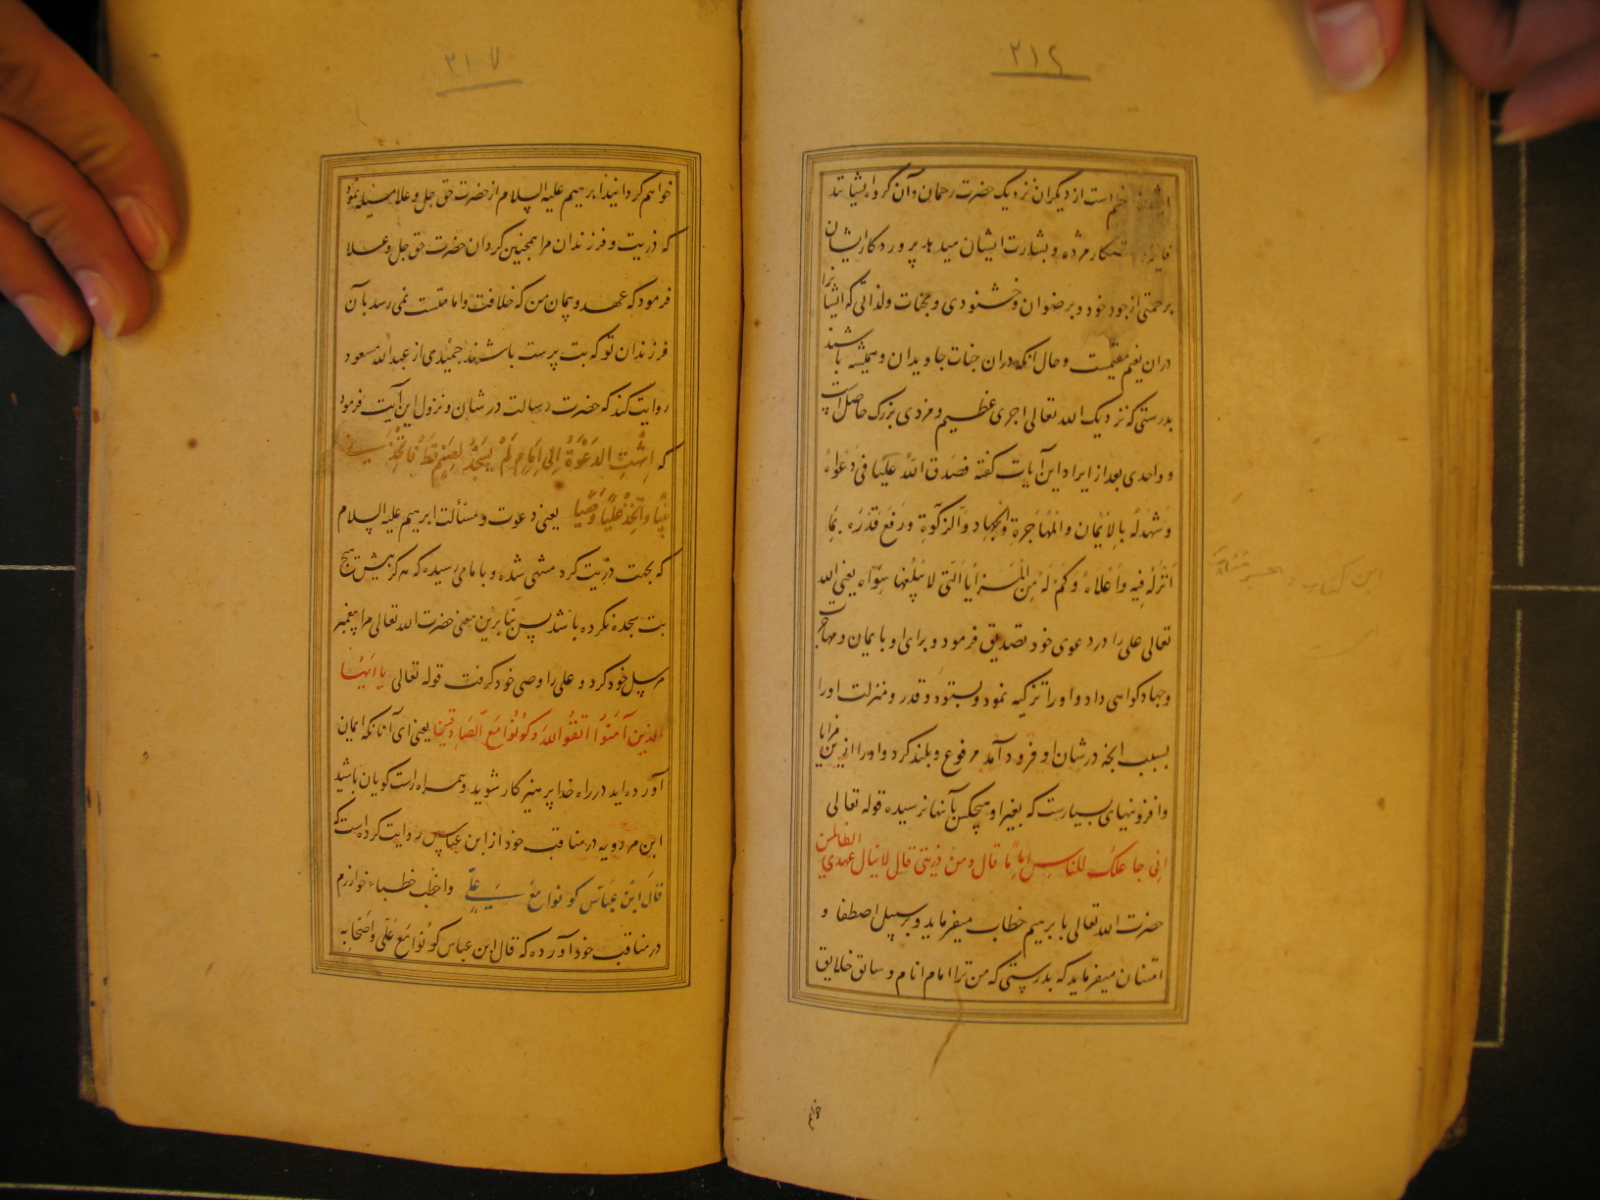 ۲۱۶
است از دیگران نزدیک حضرت رحمان و آن گروه ایشانند
مژده و بشارت ایشان میدهد پروردکار ایشان
برحمتی از جود خود و برضوان و خشنودی و بجنات ولذاتی که ایشانرا
دران نعیم مقیمست و حال آنکه دران جنات جاویدان و همیشه باشند
بدرستی که نزدیک الله تعالی اجری عظیم و مزدی بزرک حاصل است
و واحدی بعد از ایراد این آیات کفته فصدق الله علیا فی دعواه
وشهد له بالایمان والمهاجرة والجهاد والزکوة ورفع قدره بما
انزله فیه واعلاه وکم له من المزایا التی لا یبلغها سواه یعنی الله
تعالی علی را در دعوی خود تصدیق فرمود و برای او بایمان و مهاجرت
وجهاد کواهی داد و او را تزکیه نمود و بستود و قدر و منزلت او را
بسبب انچه درشان او فرود آمد مرفوع و بلند کرد و او را ازین مزایا
وافزونیهای بسیارست که بغیر او هیچکس بآنها نرسیده قوله تعالی
انی جاعلک للناس اماما قال ومن ذریتی قال لا ینال عهدی الظالمین
حضرت الله تعالی بابرهیم خطاب میفرماید و برسبیل اصطفا و
امتنان میفرماید که بدرستی که من ترا امام انام و سابق خلایق
خواهم
۲۱۷
خواهم کردانید ابرهیم علیه السلام از حضرت حق جل و علا مسئله نمود
که ذریت و فرزندان مرا همچنین کردان حضرت حق جل و علا
فرمود که عهد و پیمان من که خلافت و امامتست نمی رسد بآن
فرزندان تو که بت پرست باشند حمیدی از عبدالله مسعود
روایت کند که حضرت رسالت در شان و نزول این آیت فرمود
که انتهت الدعوة الی امام لم یسجد لصنم قط فاتخذنی
نبیا واتخذ علیا وصیا یعنی دعوت و مسألت ابرهیم علیه السلام
که بجهت ذریت کرد منتهی شده و بامامی رسیده که هرکز پیش هیچ
بت سجده نکرده باشد پس بنا برین معنی حضرت الله تعالی مرا پیغمبر
مرسل خود کرد و علی را وصی خود کرفت قوله تعالی یا ایها
الذین آمنوا اتقوا الله وکونوا مع الصادقین یعنی ای آنانکه ایمان
آورده اید در راه خدا پرهیزکار شوید و همراه راست کویان باشید
ابن مردویه در مناقب خود از ابن عباس روایت کرده است که
قال ابن عباس کونوا مع علی واخطب خطباء خوارزم
در مناقب خود آورده که قال ابن عباس کونوا مع علی واصحابه